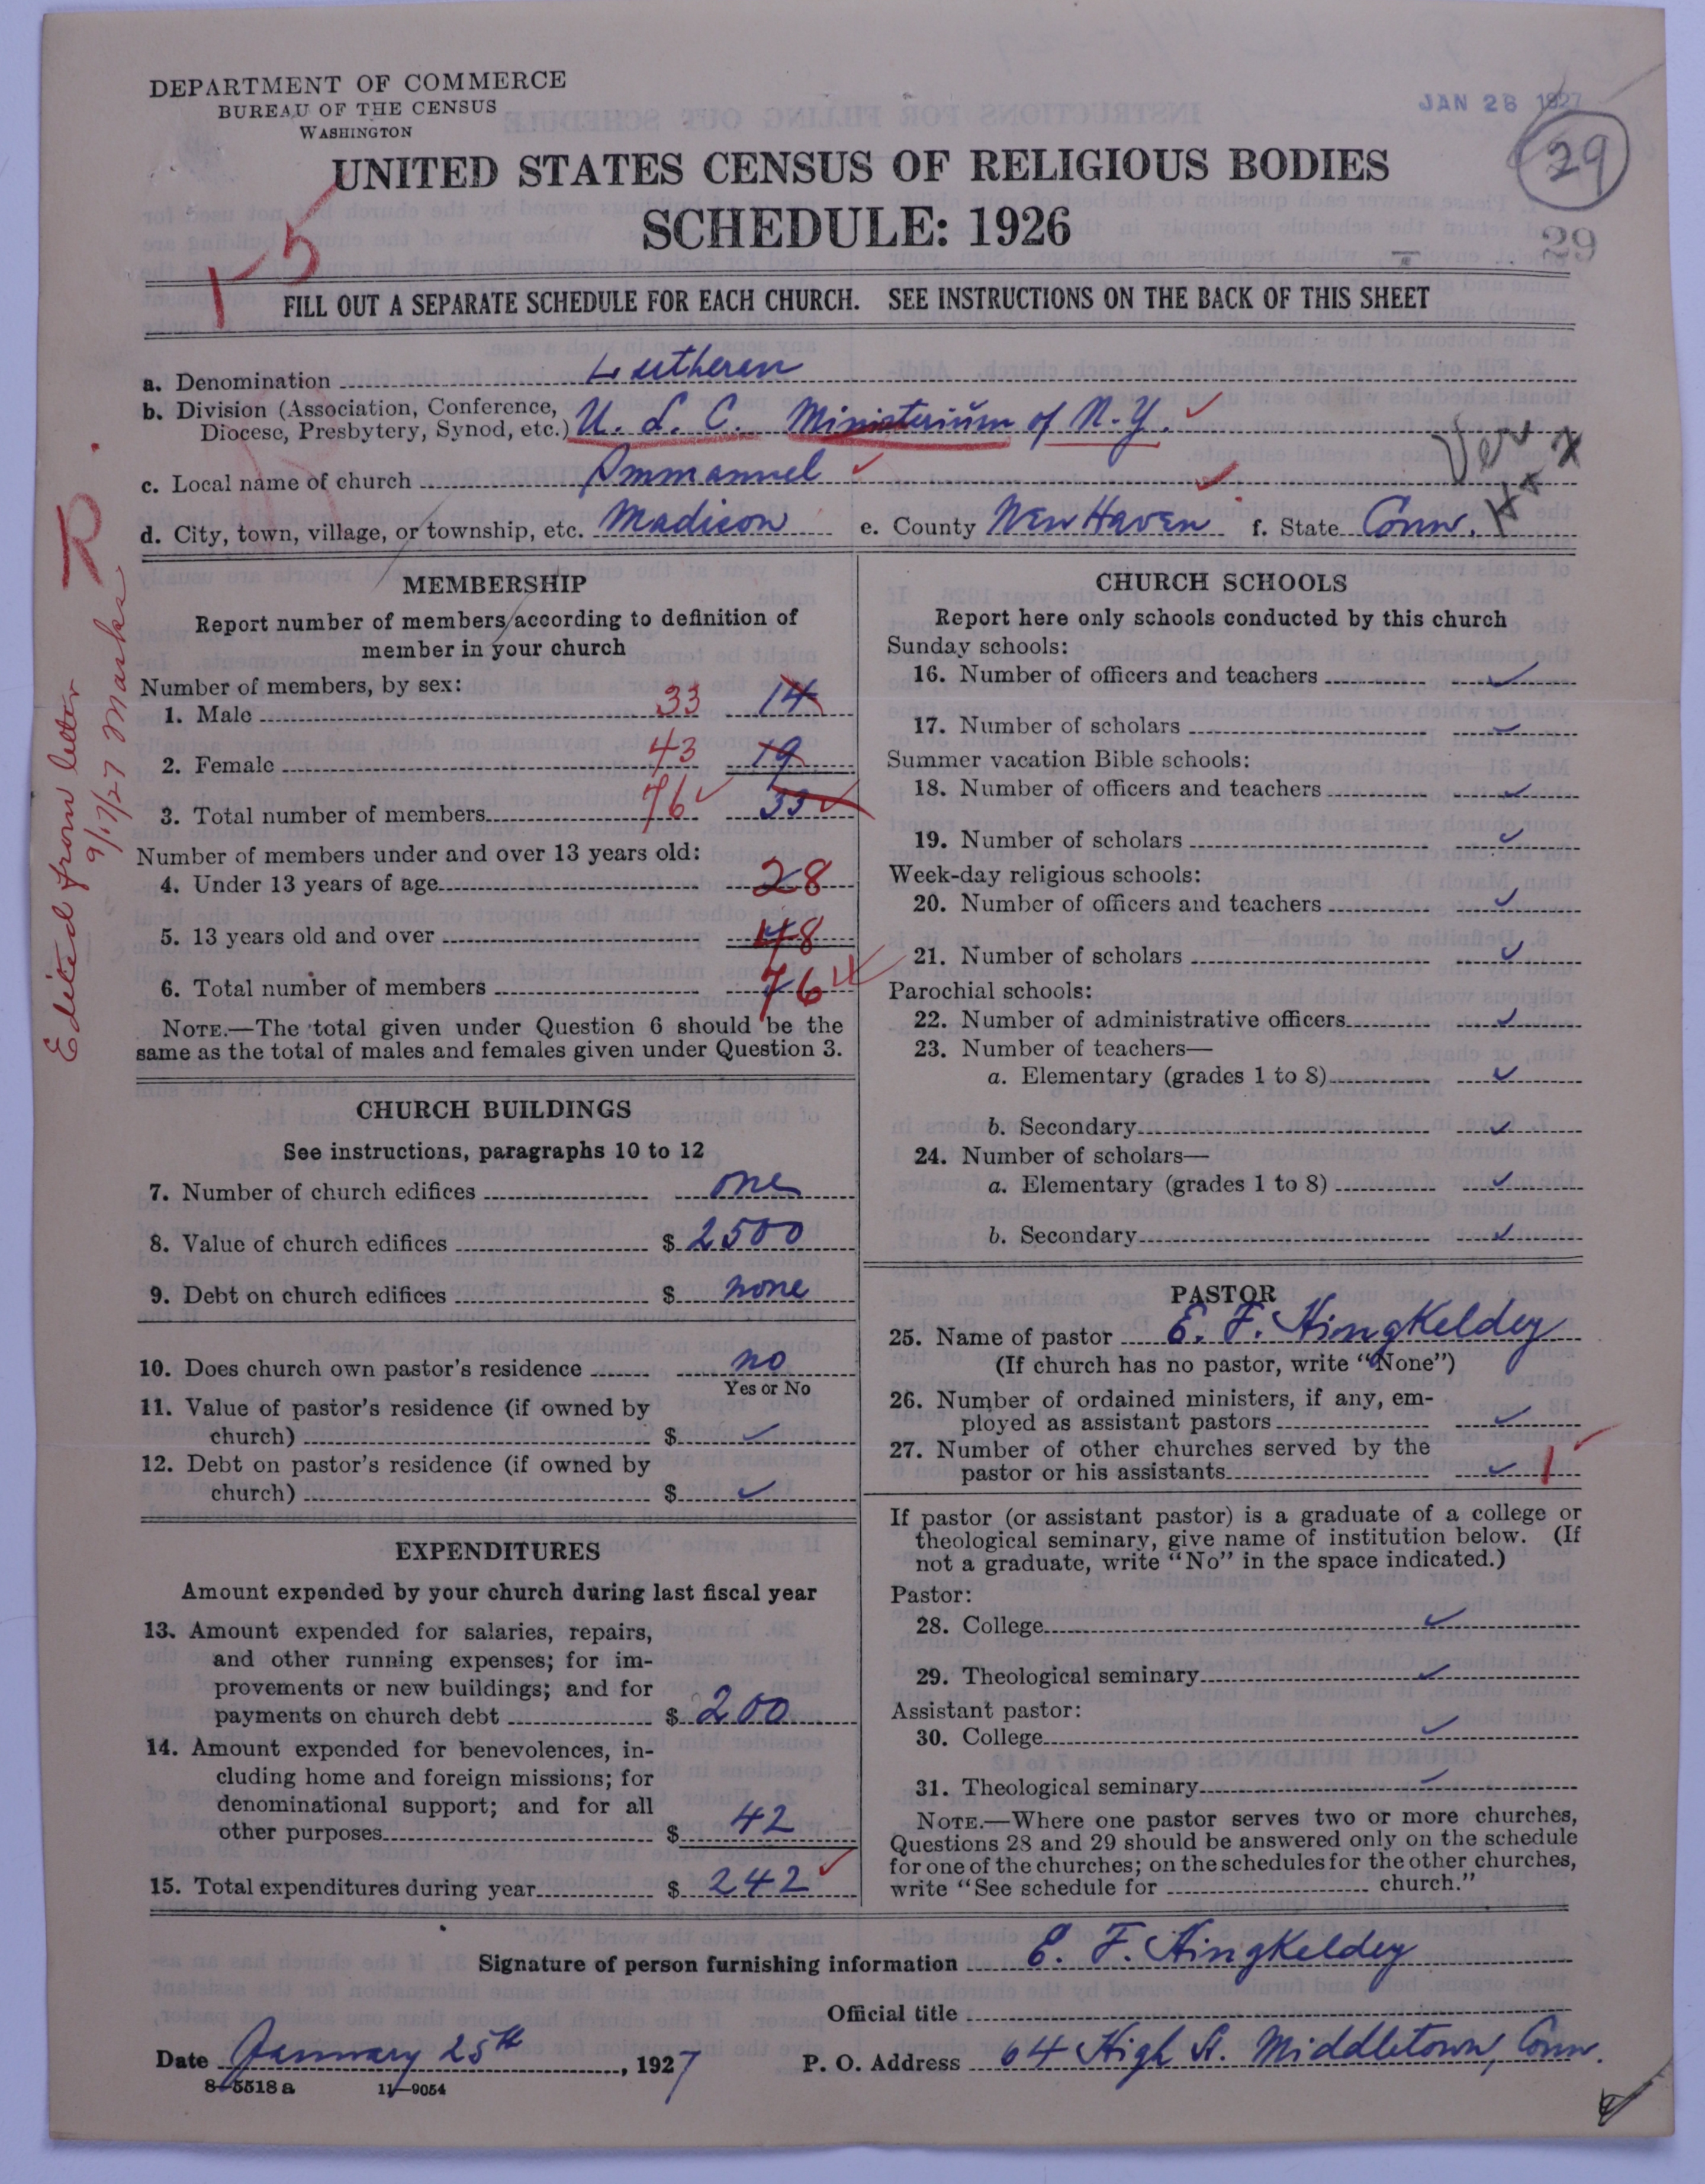 DEPARTMENT OF COMMERCE
BUREAU OF THE CENSUS
WASHINGTON
JAN 26 1927
29
UNITED STATES CENSUS OF RELIGIOUS BODIES
SCHEDULE: 1926
29
1-5
FILL OUT A SEPARATE SCHEDULE FOR EACH CHURCH. SEE INSTRUCTIONS ON THE BACK OF THIS SHEET
a. Denomination Lutheran
b. Division (Association, Conference, Diocese, Presbytery, Synod, etc.) U. L. C. Ministerium of N. Y.
Ver
c. Local name of church Immanuel
d. City, town, village, or township, etc. Madison e. County New Haven f. State Conn.
R
Edited from letter
9/17/27 Marks
MEMBERSHIP
Report number of members according to definition of
member in your church
Number of members, by sex:
1. Male 33 14
2. Female 43 19
3. Total number of members 76 33
Number of members under and over 13 years old:
4. Under 13 years of age 28
5. 13 years old and over 48
6. Total number of members 76
NOTE.—The total given under Question 6 should be the
same as the total of males and females given under Question 3.
CHURCH BUILDINGS
See instructions, paragraphs 10 to 12
7. Number of church edifices one
8. Value of church edifices $ 2500
9. Debt on church edifices $ none
10. Does church own pastor's residence no
Yes or No
11. Value of pastor's residence (if owned by
church) $ ✓
12. Debt on pastor's residence (if owned by
church) $ ✓
EXPENDITURES
Amount expended by your church during last fiscal year
13. Amount expended for salaries, repairs,
and other running expenses; for im-
provements or new buildings; and for
payments on church debt $ 200
14. Amount expended for benevolences, in-
cluding home and foreign missions; for
denominational support; and for all
other purposes $ 42
15. Total expenditures during year $ 242
CHURCH SCHOOLS
Report here only schools conducted by this church
Sunday schools:
16. Number of officers and teachers ✓
17. Number of scholars ✓
Summer vacation Bible schools:
18. Number of officers and teachers ✓
19. Number of scholars ✓
Week-day religious schools:
20. Number of officers and teachers ✓
21. Number of scholars ✓
Parochial schools:
22. Number of administrative officers ✓
23. Number of teachers—
a. Elementary (grades 1 to 8) ✓
b. Secondary ✓
24. Number of scholars—
a. Elementary (grades 1 to 8) ✓
b. Secondary ✓
PASTOR
25. Name of pastor E. F. Hingkeldey
(If church has no pastor, write "None")
26. Number of ordained ministers, if any, em-
ployed as assistant pastors ✓
27. Number of other churches served by the
pastor or his assistants ✓ 1
If pastor (or assistant pastor) is a graduate of a college or
theological seminary, give name of institution below. (If
not a graduate, write "No" in the space indicated.)
Pastor:
28. College ✓
29. Theological seminary ✓
Assistant pastor:
30. College ✓
31. Theological seminary ✓
NOTE.—Where one pastor serves two or more churches,
Questions 28 and 29 should be answered only on the schedule
for one of the churches; on the schedules for the other churches,
write "See schedule for church."
Signature of person furnishing information E. F. Hingkeldey
Official title
Date January 25th, 1927 P. O. Address 64 High St. Middletown, Conn.
8-5518 a 11-9054